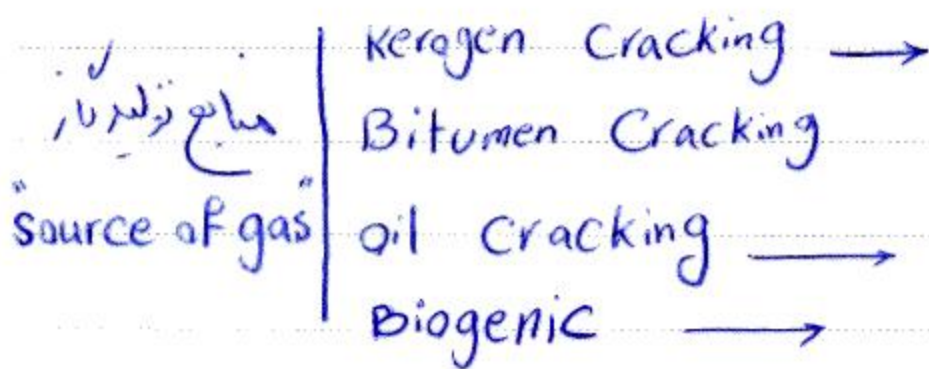 منابع تولید گاز
"source of gas"
Kerogen Cracking →
Bitumen Cracking
oil Cracking →
Biogenic →